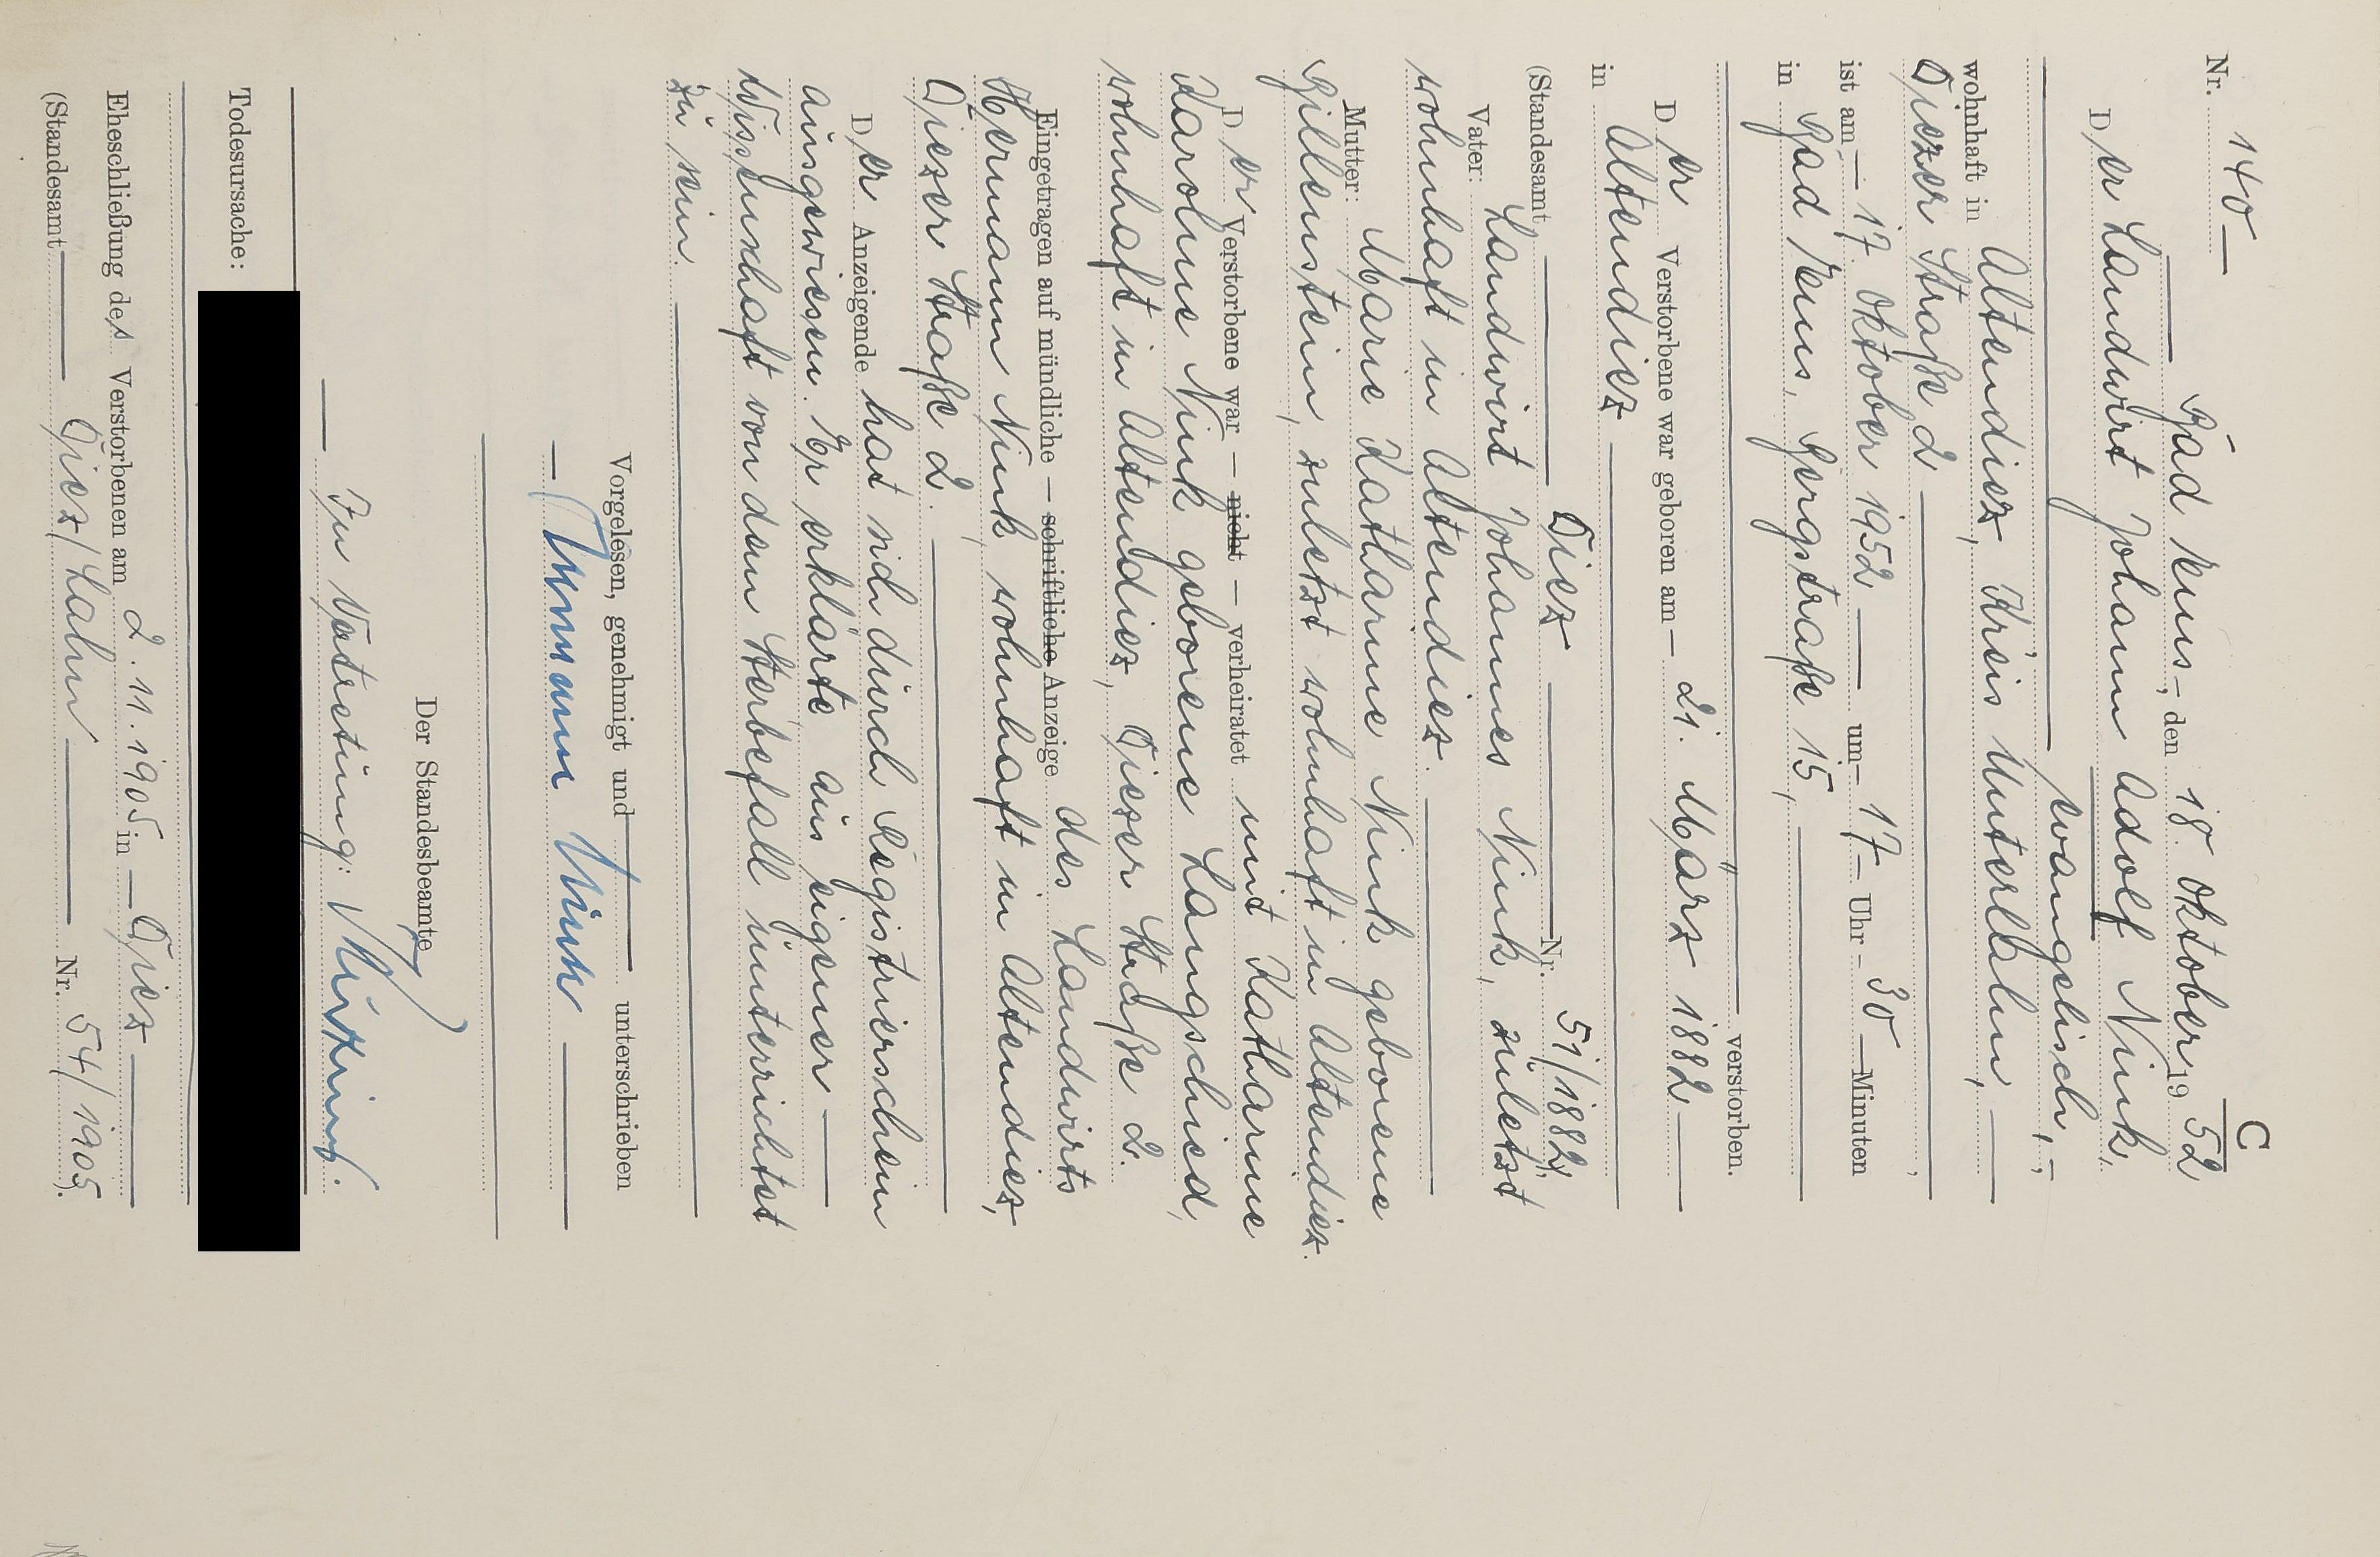 C
Nr. 140
Bad Ems, den 18. Oktober 1952
Der Landwirt Johann Adolf Nink,
evangelisch,
wohnhaft in Altendiez, Kreis Unterlahn,
Diezer Straße 2,
ist am 17. Oktober 1952 um 17 Uhr 30 Minuten
in Bad Ems, Bergstraße 15,
verstorben.
Der Verstorbene war geboren am 21. März 1882
in Altendiez
(Standesamt Diez Nr. 51/1882),
Vater: Landwirt Johannes Nink, zuletzt
wohnhaft in Altendiez.
Mutter: Marie Katharine Nink geborene
Gillenstein, zuletzt wohnhaft in Altendiez.
Der Verstorbene war — nicht — verheiratet mit Katharine
Karoline Nink geborene Langschied,
wohnhaft in Altendiez, Diezer Straße 2.
Eingetragen auf mündliche — schriftliche Anzeige des Landwirts
Hermann Nink, wohnhaft in Altendiez,
Diezer Straße 2.
Der Anzeigende hat sich durch Registrierschein
ausgewiesen. Er erklärte aus eigener
Wissenschaft von dem Sterbefall unterrichtet
zu sein.
Vorgelesen, genehmigt und unterschrieben
Hermann Nink
Der Standesbeamte
In Vertretung:
Todesursache:
Eheschließung des Verstorbenen am 2.11.1905 in Diez
(Standesamt Diez/Lahn Nr. 54/1905).